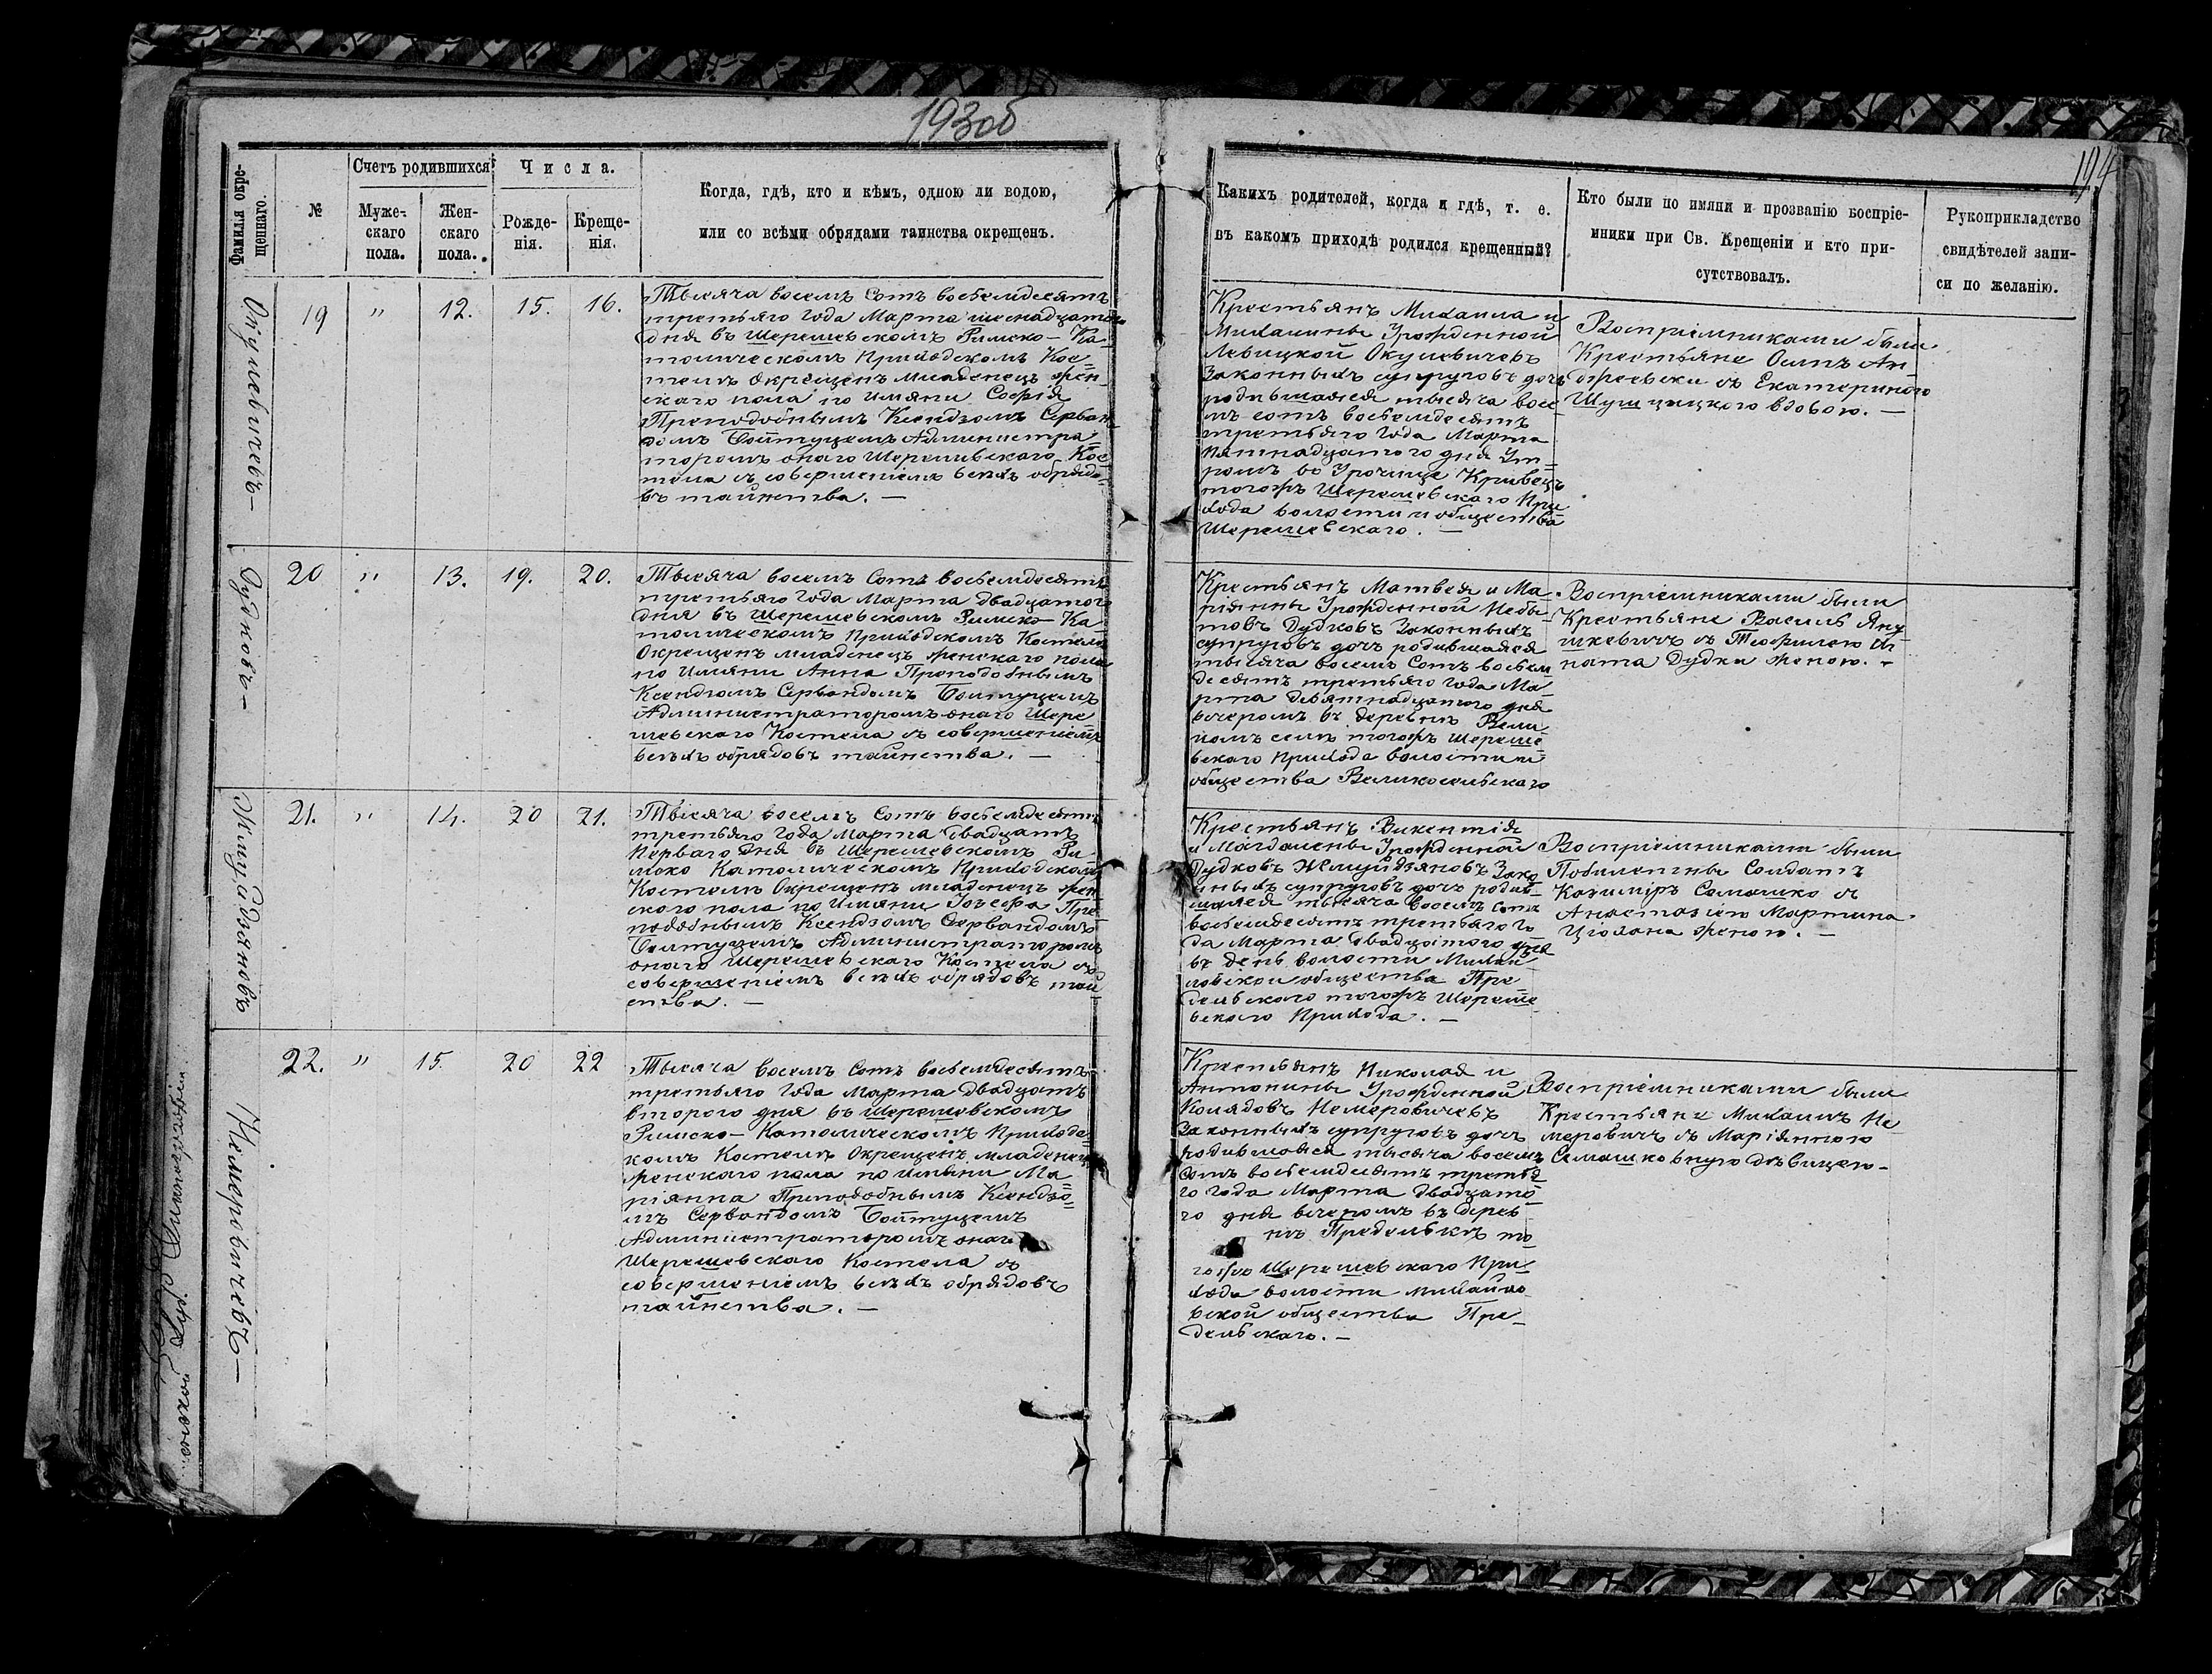 193об
194
Фамилія окре-
щеннаго.
№
Счетъ родившихся
Муже-
скаго
пола.
Жен-
скаго
пола.
Числа.
Рожде-
нія.
Креще-
нія.
Когда, гдѣ, кто и кѣмъ, одною ли водою,
или со всѣми обрядами таинства окрещенъ.
Какихъ родителей, когда и гдѣ, т. е.
въ какомъ приходѣ родился крещенный?
Кто были по имяни и прозванію воспріе-
мники при Св. Крещеніи и кто при-
сутствовалъ.
Рукоприкладство
свидѣтелей запи-
си по желанію.
Окулевичевъ —
19 " 12. 15. 16.
Тысяча восемъ Сотъ восьемдесятъ
третьяго Года Марта шеснадцатого
дня въ Шерешевскомъ Римско-Ка-
толическомъ Приходскомъ Кос=
телѣ Окрещенъ младенецъ жен-
скаго пола по имяни Софія
Преподобнымъ Ксендзомъ Серван-
домъ Болтуцемъ Администра=
торомъ онаго Шерешевскаго Кос=
тела съ совершеніемъ всѣхъ обрядо-
въ тайнства. —
Крестьянъ Михаила и
Михалины Урожденной
Левицкой Окулевичевъ
Законныхъ супруговъ дочь
родившаяся тысяча восе
мъ сотъ восьемдесятъ
третьяго Года Марта
Пятнадцатого дня Ут=
ромъ во Урочище Кривецъ
тогожъ Шерешевского При
хода волости и общества
Шерешевскаго. —
Воспріемниками были
Крестьяне Осипъ Ан-
дреевски съ Екатериною
Шушицкого вдовою. —
Дудковъ —
20 " 13. 19. 20.
Тысяча восемъ Сотъ восьемдесятъ
третьяго Года Марта двадцатого
дня въ Шерешевскомъ Римско-Ка-
толическомъ приходскомъ Костелѣ
Окрещенъ младенецъ женскаго пола
по Имяни Анна Преподобнымъ
Ксендзомъ Сервандомъ Болтуцемъ
Администраторомъ онаго Шере
шевскаго Костела съ совершеніемъ
всѣхъ обрядовъ тайнства. —
Крестьянъ Матвея и Ма-
ріянны Урожденной Небы-
товъ Дудковъ Законныхъ
супруговъ дочь родившаяся
тысяча восемъ Сотъ восьем
десятъ третьяго Года Ма-
рта Девятнадцатого дня
вечеромъ въ деревнѣ Вели-
комъ селѣ тогожъ Шереше
вскаго Прихода волости и
общества Великосельскаго
Воспріемниками были
Крестьяне Василь Яну
шкевичъ съ Теофилею Иг
ната Дудки женою. —
Жмуйдзяновъ
21. " 14. 20 21.
Тысяча восемъ Сотъ восьемдесятъ
третьяго Года Марта двадцатъ
Перваго Дня въ Шерешевскомъ Ри-
мско Католическомъ Приходскомъ
Костелѣ Окрещенъ младенецъ жен
ского пола по Имяни Іозефа Пре
подобнымъ Ксендзомъ Сервандомъ
Болтуцемъ Администраторомъ
онаго Шерешевскаго Костела съ
совершеніемъ всѣхъ обрядовъ тай
ства. —
Крестьянъ Викентія
и Магдалены Урожденной
Дудковъ Жмуйдзяновъ Зако
нныхъ супруговъ дочь родив
шаяся тысяча восемъ сотъ
восьемдесятъ третьяго Го
да Марта двадцатого дня
въ день волости Михай
ловской общества Пре
дельского тогожъ Шереше
вского Прихода. —
Воспріемниками были
Побилетны Солдатъ
Казимиръ Семашко съ
Анастазіею Мартина
Ціолана женою. —
Немеровичевъ —
22. " 15. 20 22
Тысяча восемъ Сотъ восьемдесятъ
третьяго Года Марта двадцатъ
второго дня въ Шерешевскомъ
Римско-Католическомъ Приходс-
комъ Костелѣ Окрещенъ младенец
женского пола по имяни Ма=
ріянна Преподобнымъ Ксендзо=
мъ Сервандомъ Болтуцемъ
Администраторомъ онаго
Шерешевскаго Костела съ
совершеніемъ всѣхъ обрядовъ
тайнства. —
Крестьянъ Николая и
Антонины Урожденной
Колядовъ Немеровичевъ
Законныхъ супруговъ дочь
родившаяся тысяча восемъ
Сотъ восьемдесятъ третья
го года Марта двадцато-
го дня вечеромъ въ дерев
нѣ Предельскъ то-
гожъ Шерешевскаго При-
хода волости Михайло-
вской общества Пре-
дельскаго. —
Воспріемниками были
Крестьяне Михаилъ Не-
меровичъ съ Маріянною
Семашковную дѣвицею —